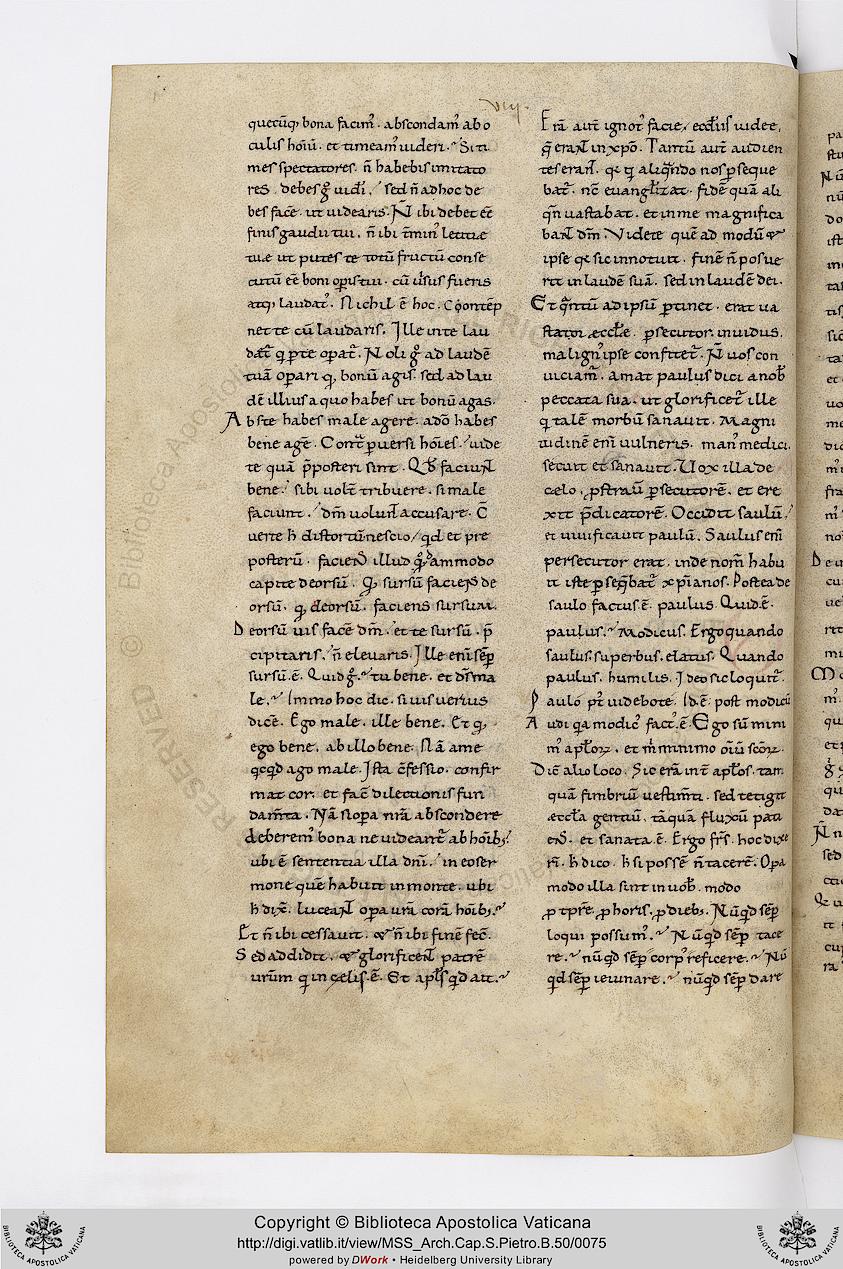 viij.
quecūq; bona facim᷒. abscondam᷒ ab o
culis hoīū. et timeam᷒ uideri. Si ti
mes spectatores. ñ habebis imitato
res. debes g̊ uidi. sed ñ ad hoc de
bes fac̄e. ut uidearis. N̄ ibi debet ēē
finis gaudii tui. ñ ibi t̄min᷒ letitie
tue ut putes te totū fructū conse
cutū ēē boni opis tui. cū uisus fueris
atq; laudat᷒. Nichil ē hoc. Contēp
ne te cū laudaris. Ille in te lau
det᷒ q p te opat᷒. Noli g̊ ad laudē
tuā operari q bonū agis. sed ad lau
dē illius a quo habes ut bonū agas.
Abs te habes male agere. a dō habes
bene age. Cont̄ puersi hoīes. uide
te quā p̄posteri sint. Qd̄ faciunt
bene. sibi uolt̄ tribuere. si male
faciunt. dm̄ uolunt accusare. C̄
uerte h distortū nescio qd et pre
posterū. faciens illud quammodo
capite deorsū. Q sursū faciens de
orsū. q deorsū. faciens sursum.
Deorsū uis fac̄e dm̄. et te sursū. p̄
cipitaris. ñ eleuaris. Ille enī sēp
sursū.ē. Quid g̊. tu bene. et ds̄ ma
le. Immo hoc dic. si uis uerius
dic̄e. Ego male. ille bene. Et q
ego bene. ab illo bene. Nā a me
qcqd ago male. Ista c̄fessio. confir
mat cor. et fac̄ dilectionis fun
dam̄ta. Nā si opa n̄ra abscondere
deberem᷒ bona ne uideant᷒ ab hoīb;
ubi ē sententia illa dnī. in eo ser
mone quē habuit in monte. ubi
h dix̄. luceant opa ur̄a corā hoīb;
Et ñ ibi cessauit. & ñ ibi finē fec̄.
Sed addidit. & glorificent patrē
ur̄um q in cęlis.ē. Et apl̄s qd ait.
Erā aut̄ ignot᷒ facie. eccl̄iis iudee.
q̄ erant in xp̄o. Tantū aut̄ audien
tes erant. q̄ q aliqn̄do nos p seque
bat᷒. nc̄ euangl̄izat. fidē quā ali
qn̄ uastabat. et in me magnifica
bant dm̄. Videte quē ad modū &
ipse q̄ sic innotuit. finē ñ posue
rit in laudē suā. sed in laudē dei.
Et q̄ntū ad ipsū ptinet. erat ua
stator æccl̄e. psecutor. inuidus.
malign᷒ ipse confitet᷒. N̄ uos con
uiciam᷒. amat paulus dici a nob̄
peccata sua. ut glorificet᷒ ille
q talē morbū sanauit. Magni
tudinē enī uulneris. man᷒ medici.
secuit et sanauit. Uox illa de
cælo. pstrauit psecutorē. et ere
xit p̄dicatorē. Occidit saulū.
et uiuificauit paulū. Saulus enī
persecutor erat. inde nom̄ habu
it iste p seq̄bat᷒ xp̄ianos. Postea de
saulo factus.ē. paulus. Quid.ē.
paulus. Modicus. Ergo quando
saulus. superbus. elatus. Quando
paulus. humilis. Ideo sic loquit᷒.
Paulo p᷒ uidebo te. Id.ē. post modicū
Audi q̄a modic᷒ fact᷒.ē. Ego sū mini
m᷒ apl̄oꝝ. et m̄ minimo oīū sc̄oꝝ.
Dic̄ alio loco. Sic erā int̄ apl̄os. tam
quā fimbriū uestim̄ti. sed tetigit
æccl̄a gentiū. tāquā fluxū pati
ens. et sanata ē. Ergo fr̄s. hoc dixe
rī. h dico. h si possē ñ tacerē. Opa
modo illa sint in uob̄. modo
p tp̄re. p horis. p dieb;. Nūqd sēp
loqui possum᷒. Nūqd sēp tace
re. nūqd sēp corp᷒ reficere. Nū
qd sēp ieiunare. nūqd sēp dare
RESERVED © Biblioteca Apostolica
Copyright © Biblioteca Apostolica Vaticana
http://digi.vatlib.it/view/MSS_Arch.Cap.S.Pietro.B.50/0075
powered by DWork • Heidelberg University Library
BIBLIOTECA APOSTOLICA VATICANA
BIBLIOTECA APOSTOLICA VATICANA